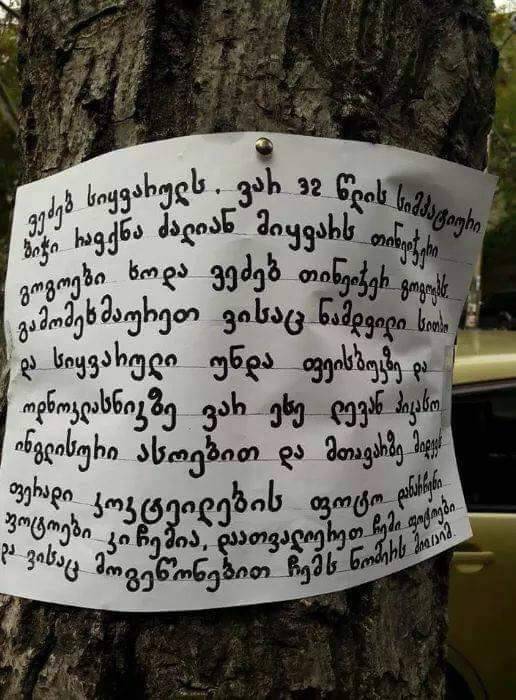 ვეძებ სიყვარულს. ვარ 32 წლის სიმპატიური
ბიჭი რავქნა ძალიან მიყვარს თინეიჯერი
გოგოები ხოდა ვეძებ თინეიჯერ გოგოებს.
გამომეხმაურეთ ვისაც ნამდვილი სითბო
და სიყვარული უნდა ფეისბუკზე და
ოდნოკლასნიკზე ვარ ესე ლევან პიკასო
ინგლისური ასოებით და მთავარზე მიდევს
ფერადი კოკტეილების ფოტო დანარჩენი
ფოტოები კი ჩემია, დაათვალიერეთ ჩემი ფოტოები
და ვისაც მოგეწონებით ჩემს ნომერს მიიღებთ.